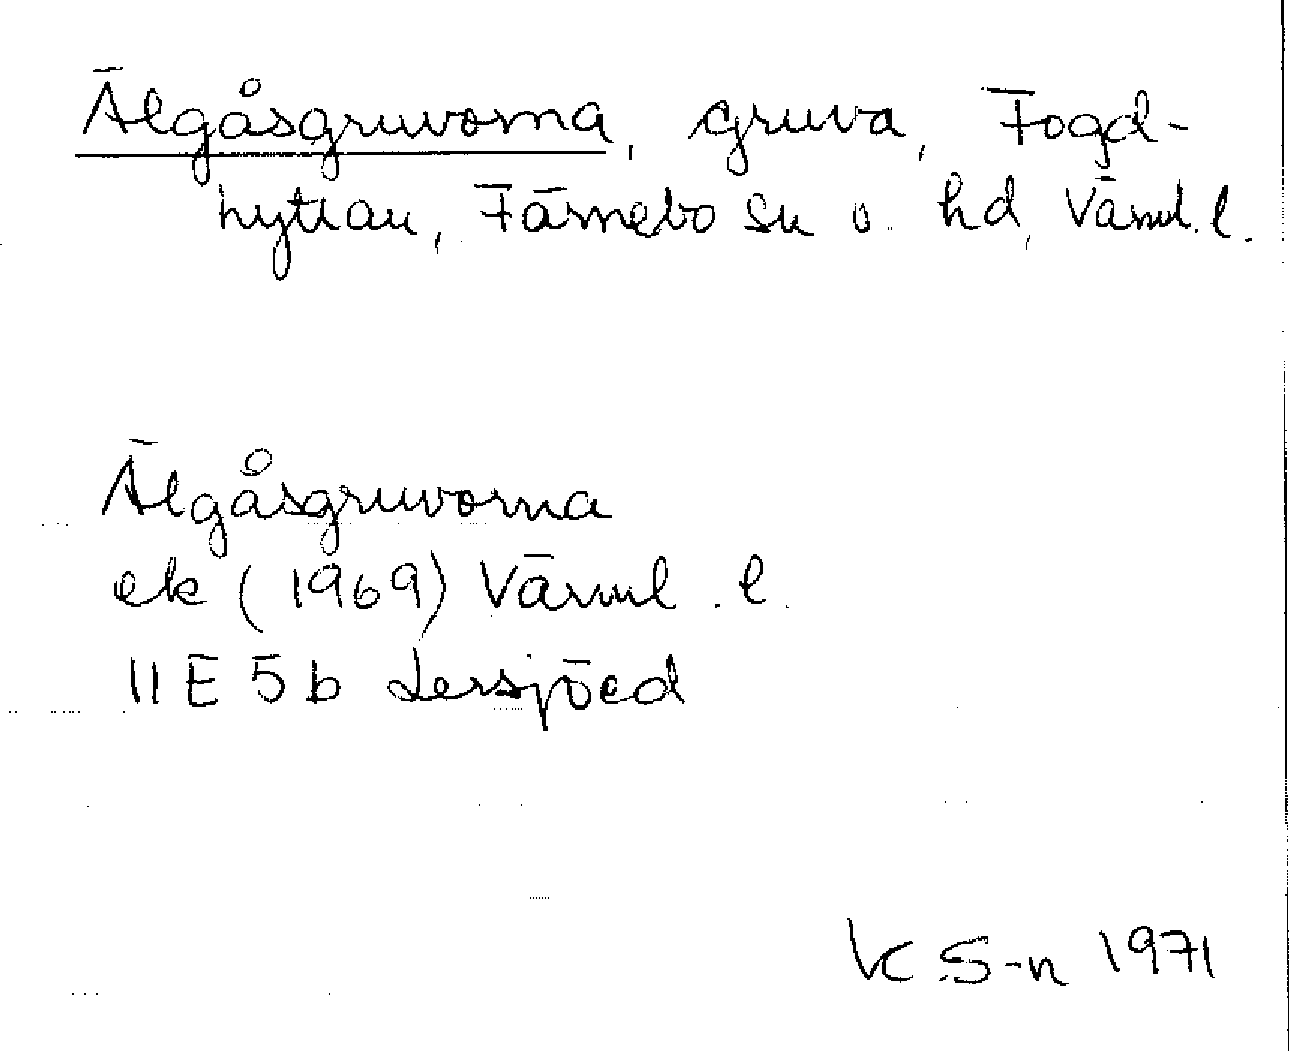 Älgåsgruvorna, gruva, Fogd-
hyttan, Färnebo sn o. hd, Värml. l.
Älgåsgruvorna
ek (1969) Värml. l.
11 E 5 b Lersjöed
K S-n 1971